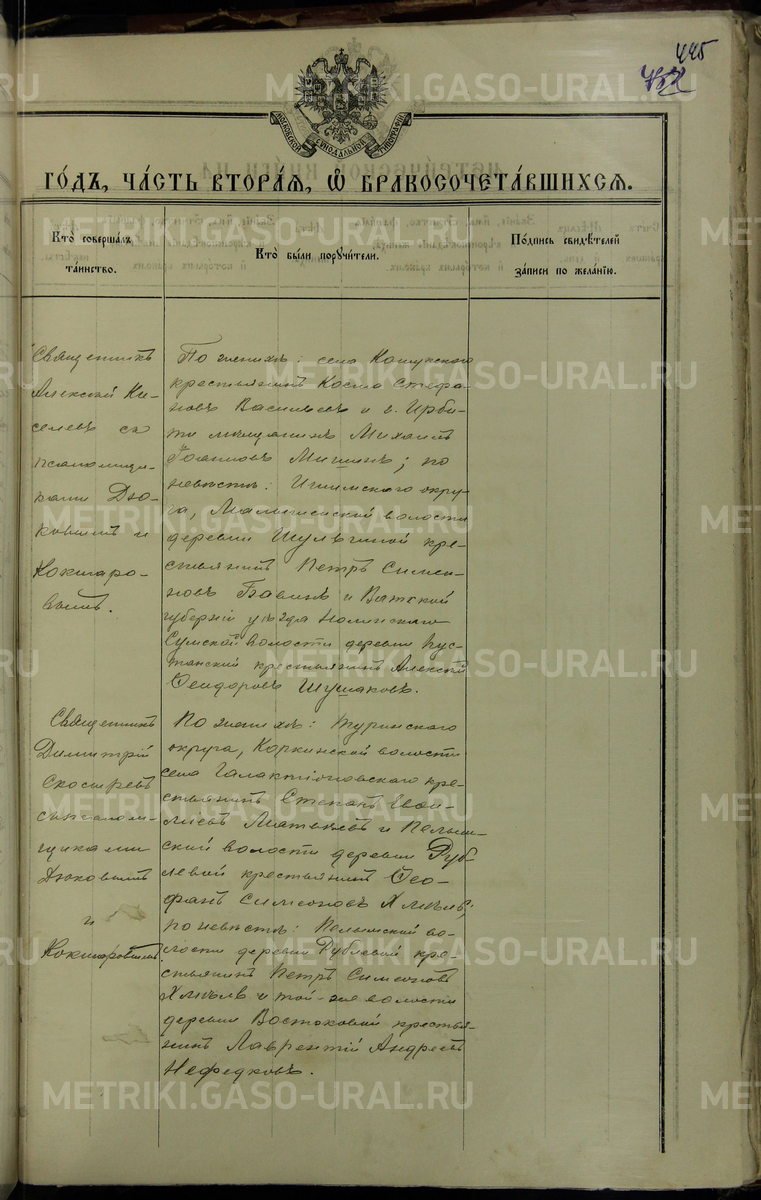 445
МОСКОВСКОЙ СѴНОДАЛЬНОЙ ТИПОГРАФІИ
ГО́ДЪ, ЧА́СТЬ ВТОРА́Я, Ѡ҆ БРАКОСОЧЕТА́ВШИХСЯ.
Кто̀ совершалъ
та́инство.
Кто̀ бы́ли поручи́тели.
По́дпись свидѣ́телей
за́писи по жела́нію.
Священникъ
Алексѣй Ки-
селевъ съ
псаломщи-
ками Дю-
ковымъ и
Кокшаро-
вымъ.
По женихѣ: села Кошукскаго
крестьянинъ Косма Стефа-
новъ Васильевъ и г. Ирби-
ти мѣщанинъ Михаилъ
Іоанновъ Мишинъ; по
невѣстѣ: Ишимскаго окру-
га, волости
деревни крe-
стьянинъ Петръ Симео-
новъ и Вятской
губерніи уѣзда Нолинскаго
Сумской волости деревни
крестьянинъ Алексѣй
Ѳеодоровъ Шушаковъ.
Священникъ
Димитрій
съ псаломщ-
щиками
Дюковымъ
и
Кокшаровымъ.
По женихѣ: Туринскаго
округа, Коркинской волости
села Галактіоновскаго кре-
стьянинъ Стефанъ
и Пелым-
ской волости деревни Руб-
левой крестьянинъ Ѳео-
фанъ Симеоновъ Хмѣлевъ;
по невѣстѣ: Пелымской во-
лости деревни Рублевой кре-
стьянинъ Петръ Симеоновъ
Хмѣлевъ и той-же волости
деревни Востоковой крестья-
нинъ Лаврентій Андреевъ
Нефедковъ.
METRIKI.GASO-URAL.RU